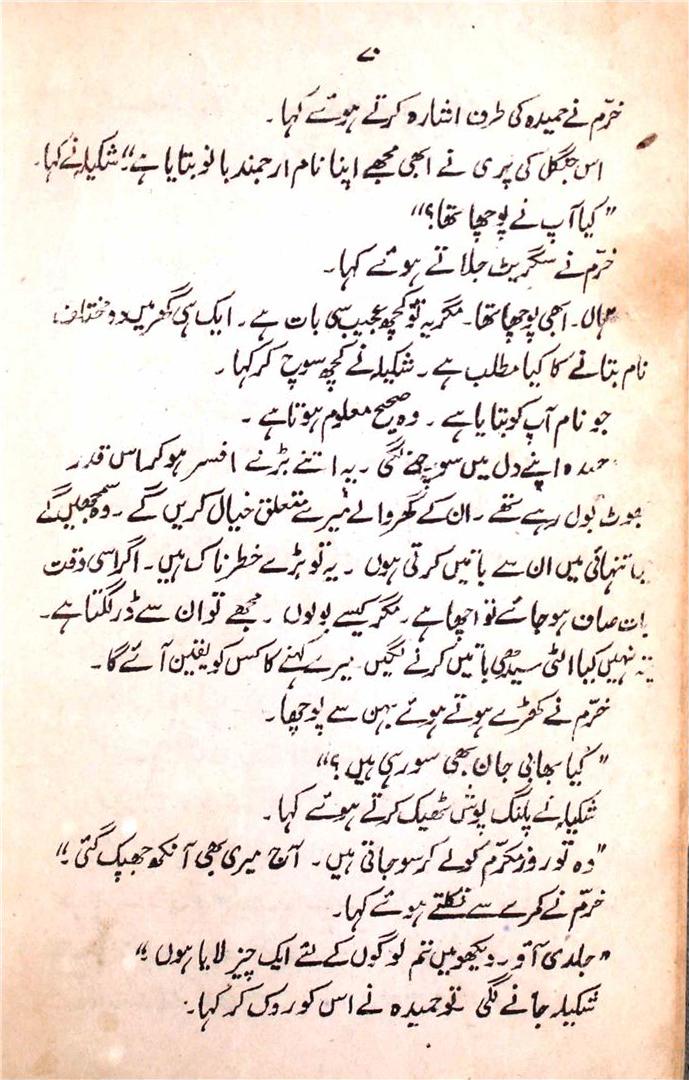 ۷۰
خرّم نے حمیدہ کی طرف اشارہ کرتے ہوئے کہا۔
اس جنگل کی پری نے ابھی مجھے اپنا نام ارجمند بانو بتایا ہے“ شکیلہ نے کہا۔
”کیا آپ نے پوچھا تھا؟“
خرّم نے سگریٹ جلاتے ہوئے کہا۔
ہاں۔ ابھی پوچھا تھا۔ مگر یہ تو کچھ عجیب سی بات ہے۔ ایک ہی گھر میں دو مختلف
نام بتانے کا کیا مطلب ہے۔ شکیلہ نے کچھ سوچ کر کہا۔
جو نام آپ کو بتایا ہے۔ وہ صحیح معلوم ہوتا ہے۔
حمیدہ اپنے دل میں سوچنے لگی۔ یہ اتنے بڑے افسر ہو کر اس قدر
جھوٹ بول رہے تھے۔ ان کے گھر والے میرے متعلق خیال کریں گے۔ وہ سمجھیں گے
میں تنہائی میں ان سے باتیں کرتی ہوں۔ یہ تو بڑے خطرناک ہیں۔ اگر اسی وقت
بات صاف ہو جائے تو اچھا ہے۔ مگر کیسے بولوں۔ مجھے تو ان سے ڈر لگتا ہے۔
پتہ نہیں کیا الٹی سیدھی باتیں کرنے لگیں میرے کہنے کا کس کو یقین آئے گا۔
خرّم نے کھڑے ہوتے ہوئے بہن سے پوچھا۔
”کیا بھابی جان بھی سو رہی ہیں؟“
شکیلہ نے پلنگ پوش ٹھیک کرتے ہوئے کہا۔
”وہ تو روز مکرّم کو لے کر سو جاتی ہیں۔ آج میری بھی آنکھ جھپک گئی۔“
خرّم نے کمرے سے نکلتے ہوئے کہا۔
”جلدی آؤ۔ دیکھو میں تم لوگوں کے لئے ایک چیز لایا ہوں۔“
شکیلہ جانے لگی تو حمیدہ نے اس کو روک کر کہا۔